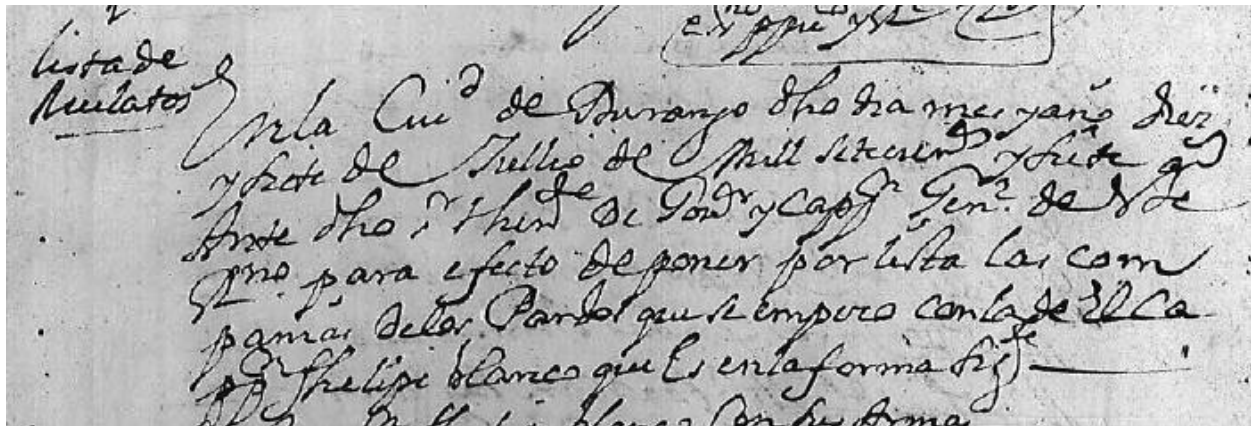 exo ppu co y Rl
lista de
Mulatos
En la Ciud de Durango dho dia mes y año diez
y siete de Jullio de Mill setecientos y siete as
Ante dho sr thente de Govor y Cappn Genl de este
Rno para efecto de poner por lista las com
panias de los Pardos que se empezo con la de El Ca
ppn Phelipe blanco que Es en la forma sigte
blanco Con sus Armas